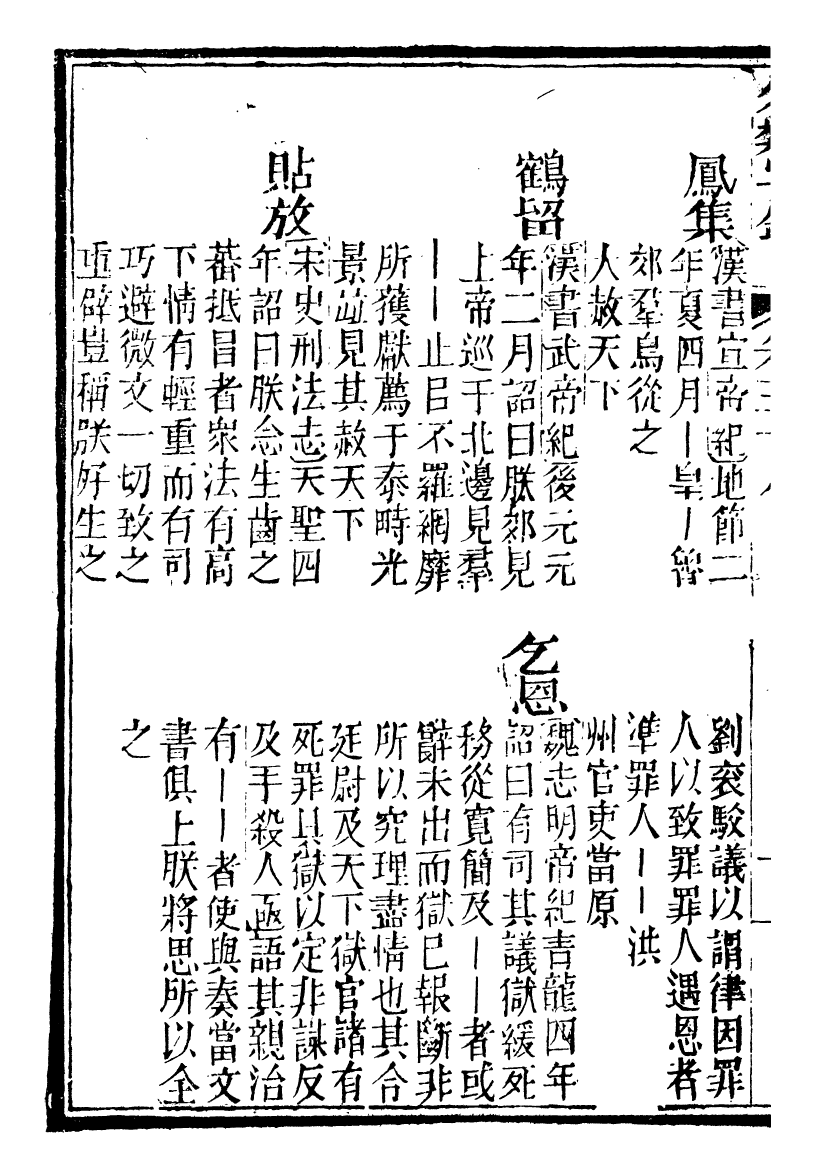 鳳集
漢書宣帝紀地節二
年夏四月｜皇｜魯
郊羣鳥從之
大赦天下
鶴留
漢書武帝紀後元元
年二月詔曰朕郊見
上帝巡于北邊見羣
｜｜止㠯不羅網靡
所獲獻薦于泰畤光
景竝見其赦天下
貼放
宋史刑法志天聖四
年詔曰朕念生齒之
蕃抵冒者衆法有高
下情有輕重而有司
巧避微文一切致之
重辟豈稱朕好生之
劉袞駁議以謂律因罪
人以致罪罪人遇恩者
準罪人｜｜洪
州官吏當原
乞恩
魏志明帝紀青龍四年
詔曰有司其議獄緩死
務從寬簡及｜｜者或
辭未出而獄已報斷非
所以究理盡情也其令
廷尉及天下獄官諸有
死罪具獄以定非謀反
及手殺人亟語其親治
有｜｜者使與奏當文
書俱上朕將思所以全
之